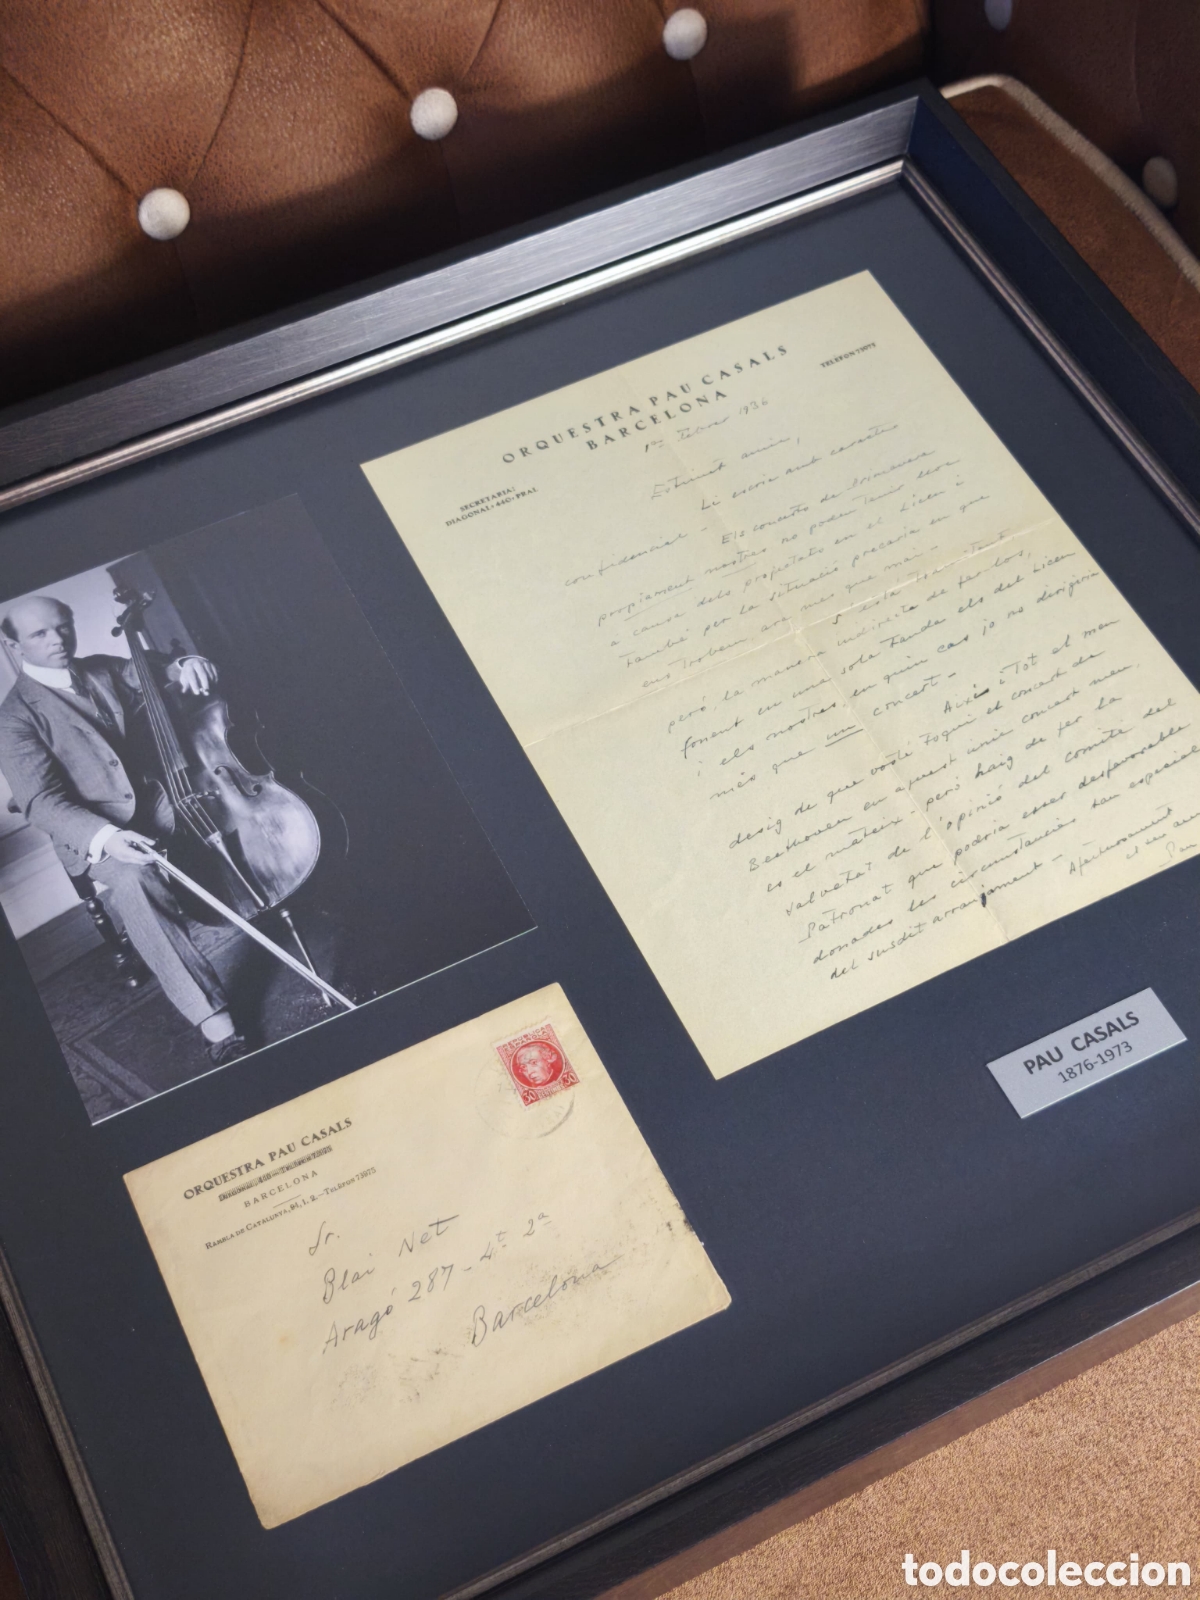 ORQUESTRA PAU CASALS
BARCELONA
TELÈFON 73075
SECRETARIA:
DIAGONAL · 440 · PRAL
1er febrer 1936
Estimat amic,
Li escric amb caracter
confidencial - Els concerts de Primavera
propiament nostres no poden tenir lloc
a causa dels propietats en el Liceu i
també per la situació precaria en que
ens trobem, ara mes que mai -
però, la manera indirecta de fer-los,
fonent en una sola tanda els del Liceu
i els nostres, en quin cas jo no dirigiria
més que un concert -
Aixís i tot el meu
desig de que vostè toqui el concert de
Beethoven en aquest únic concert meu,
es el mateix - però haig de fer la
salvetat de l'opinió del comitè del
Patronat que podria esser desfavorable
donades les circumstancies tan especials
del susdit arranjament -
Afectuosament
Pau
PAU CASALS
1876-1973
30 30
ORQUESTRA PAU CASALS
BARCELONA
RAMBLA DE CATALUNYA, 94, 1.º 2.ª - TELÈFON 73075
Sr.
Blai Net
Aragó 287 - 4t 2a
Barcelona
todocoleccion